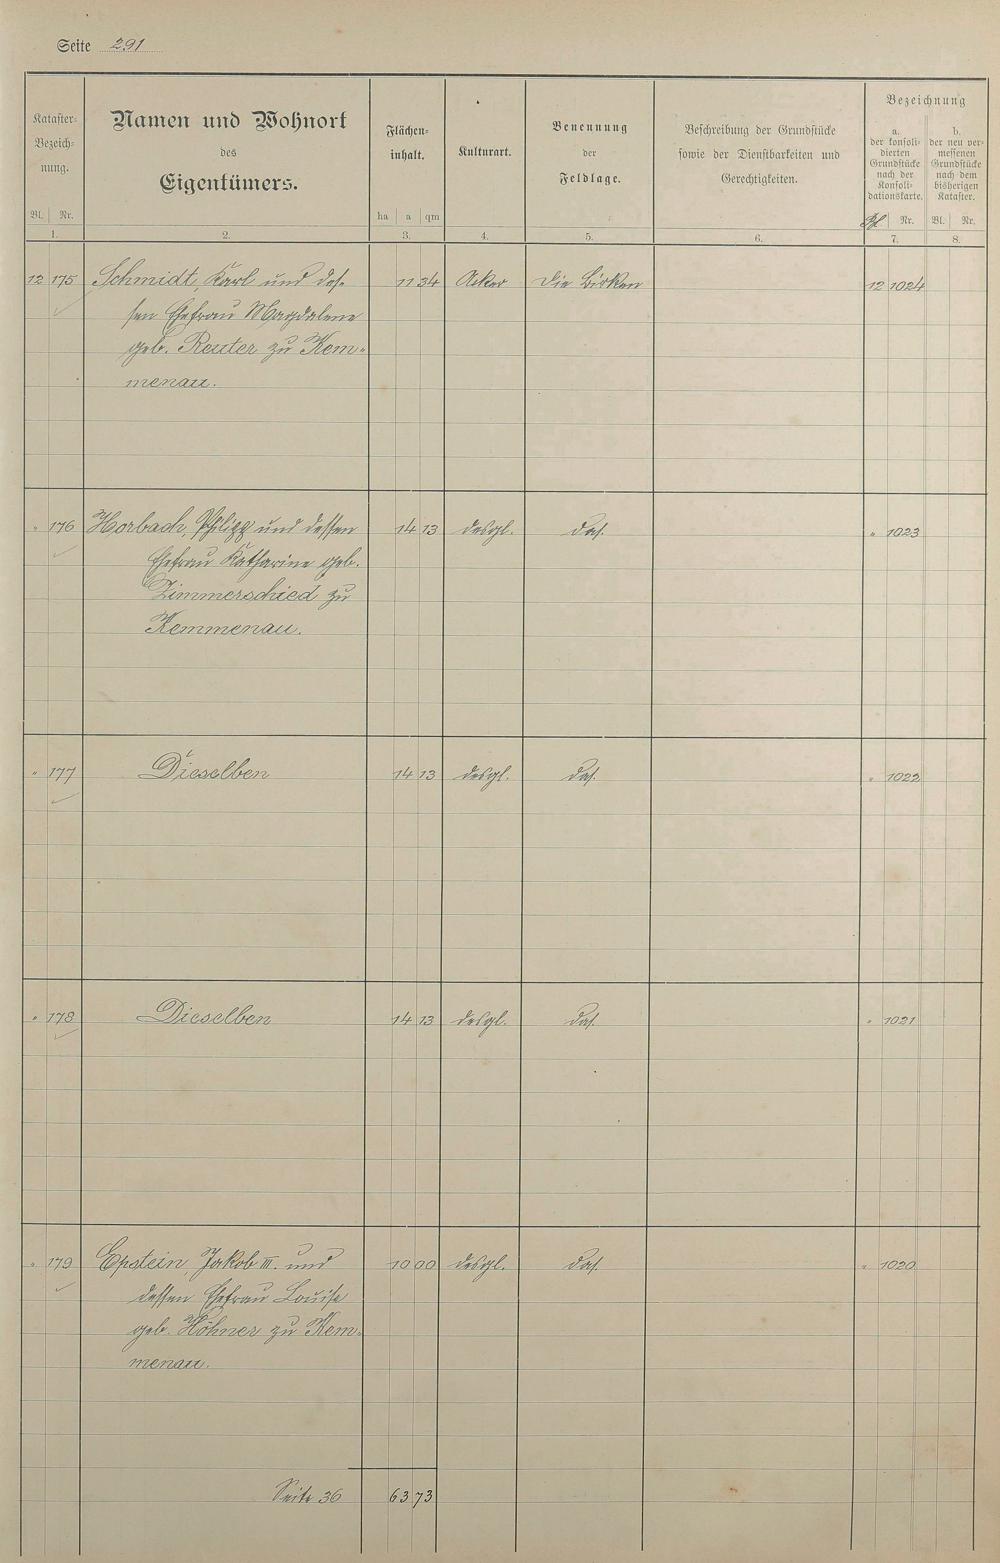 Seite 291
Kataster-
Bezeich-
nung.
Namen und Wohnort
des
Eigentümers.
Flächen-
inhalt.
Kulturart.
Benennung
der
Feldlage.
Beschreibung der Grundstücke
sowie der Dienstbarkeiten und
Gerechtigkeiten.
Bezeichnung
a.
der konsoli-
dierten
Grundstücke
nach der
Konsoli-
dationskarte.
b.
der neu ver-
messenen
Grundstücke
nach dem
bisherigen
Kataster.
Bl. Nr. ha a qm Bl. Nr. Bl. Nr.
1. 2. 3. 4. 5. 6. 7. 8.
12 175 Schmidt, Karl und des- 11 34 Acker Die Birken 12 1024
sen Ehefrau Magdalene
geb. Reuter zu Kem-
menau.
" 176 Horbach, Philipp und dessen 14 13 desgl. das. " 1023
Ehefrau Katharine geb.
Zimmerschied zu
Kemmenau.
" 177 Dieselben 14 13 desgl. das. " 1022
" 178 Dieselben 14 13 desgl. das. " 1021
" 179 Epstein, Jakob III. und 10 00 desgl. das. " 1020
dessen Ehefrau Louise
geb. Höhner zu Kem-
menau.
Seite 36 63 73